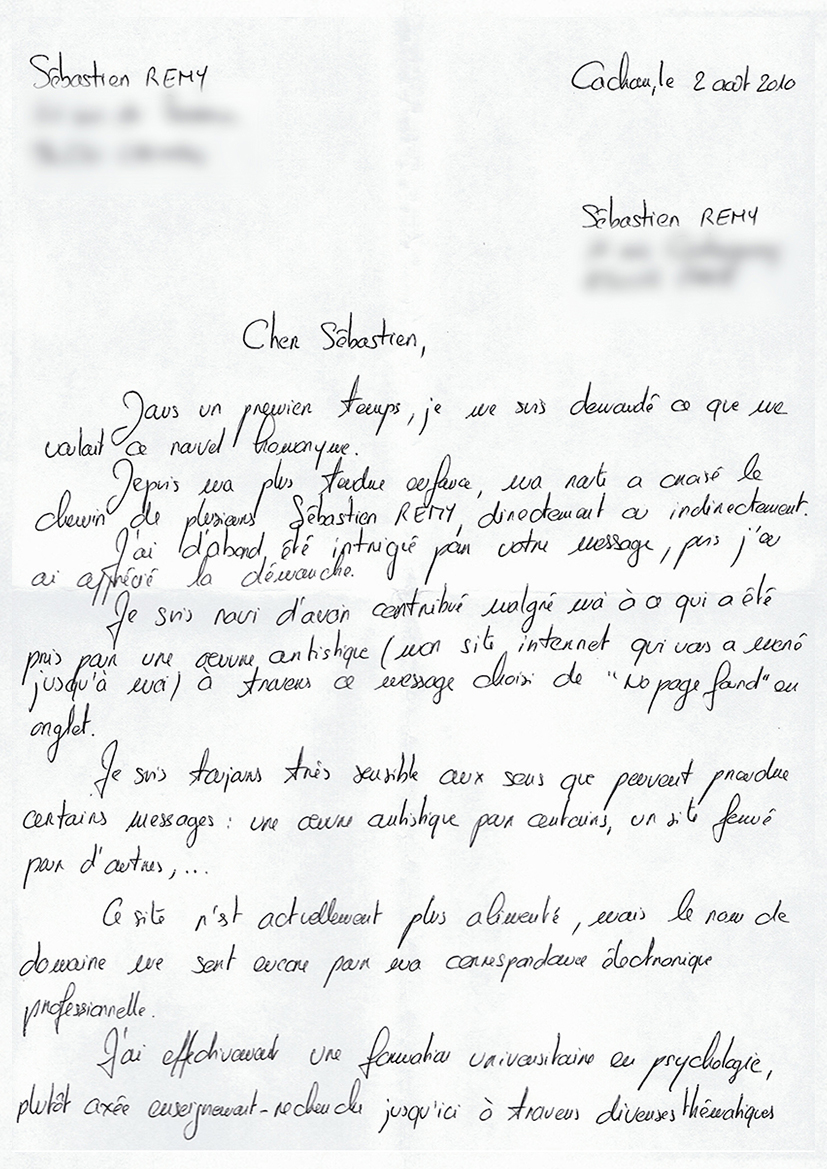 Sébastien REMY
Cachan, le 2 août 2010
Sébastien REMY
Cher Sébastien,
Dans un premier temps, je me suis demandé ce que me
voulait ce nouvel homonyme.
Depuis ma plus tendre enfance, ma route a croisé le
chemin de plusieurs Sébastien REMY, directement ou indirectement.
J'ai d'abord été intrigué par votre message, puis j'en
ai apprécié la démarche.
Je suis ravi d'avoir contribué malgré moi à ce qui a été
pris pour une œuvre artistique (mon site internet qui vous a mené
jusqu'à moi) à travers ce message choisi de "No page found" en
onglet.
Je suis toujours très sensible aux sens que peuvent prendre
certains messages : une œuvre artistique pour certains, un site fermé
pour d'autres,...
Ce site n'est actuellement plus alimenté, mais le nom de
domaine me sert encore pour ma correspondance électronique
professionnelle.
J'ai effectivement une formation universitaire en psychologie,
plutôt axée enseignement-recherche jusqu'ici à travers diverses thématiques